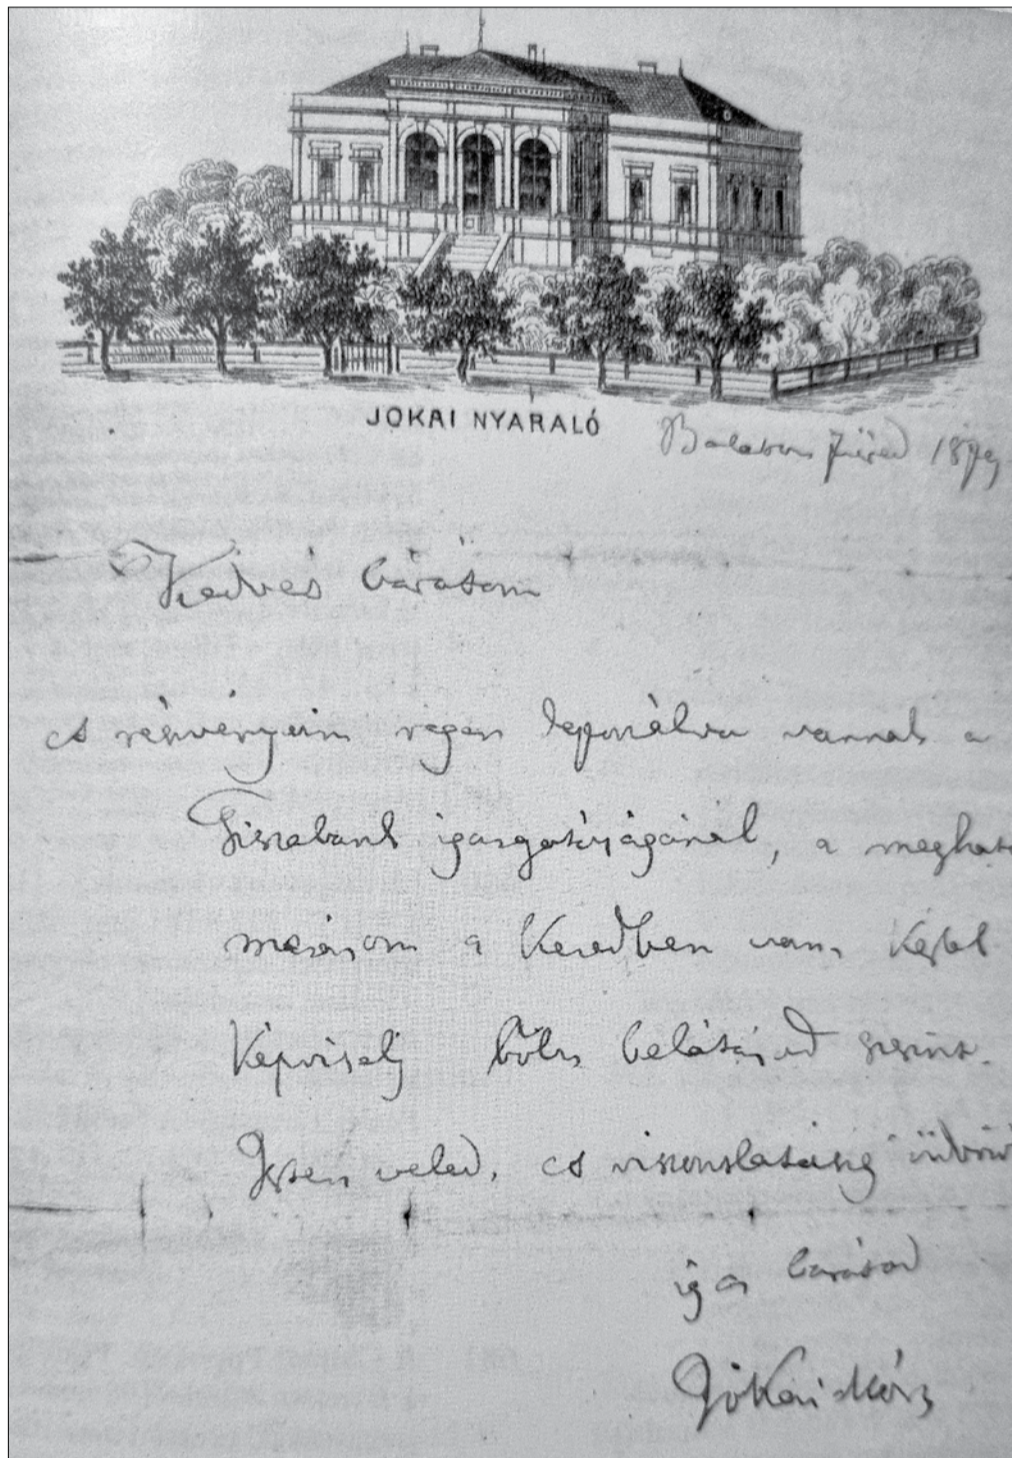 JOKAI NYARALÓ
Balaton Füred 1879
Kedves barátom
A részvényeim régen deponálva vannak a
Tiszabank igazgatóságánál, a meghata
mazásom a Kezedben van,
Képviselj bölcs belátásod szerint.
Isten veled. A viszontlátásig üdvöz
igaz barátod
Jókai Mór